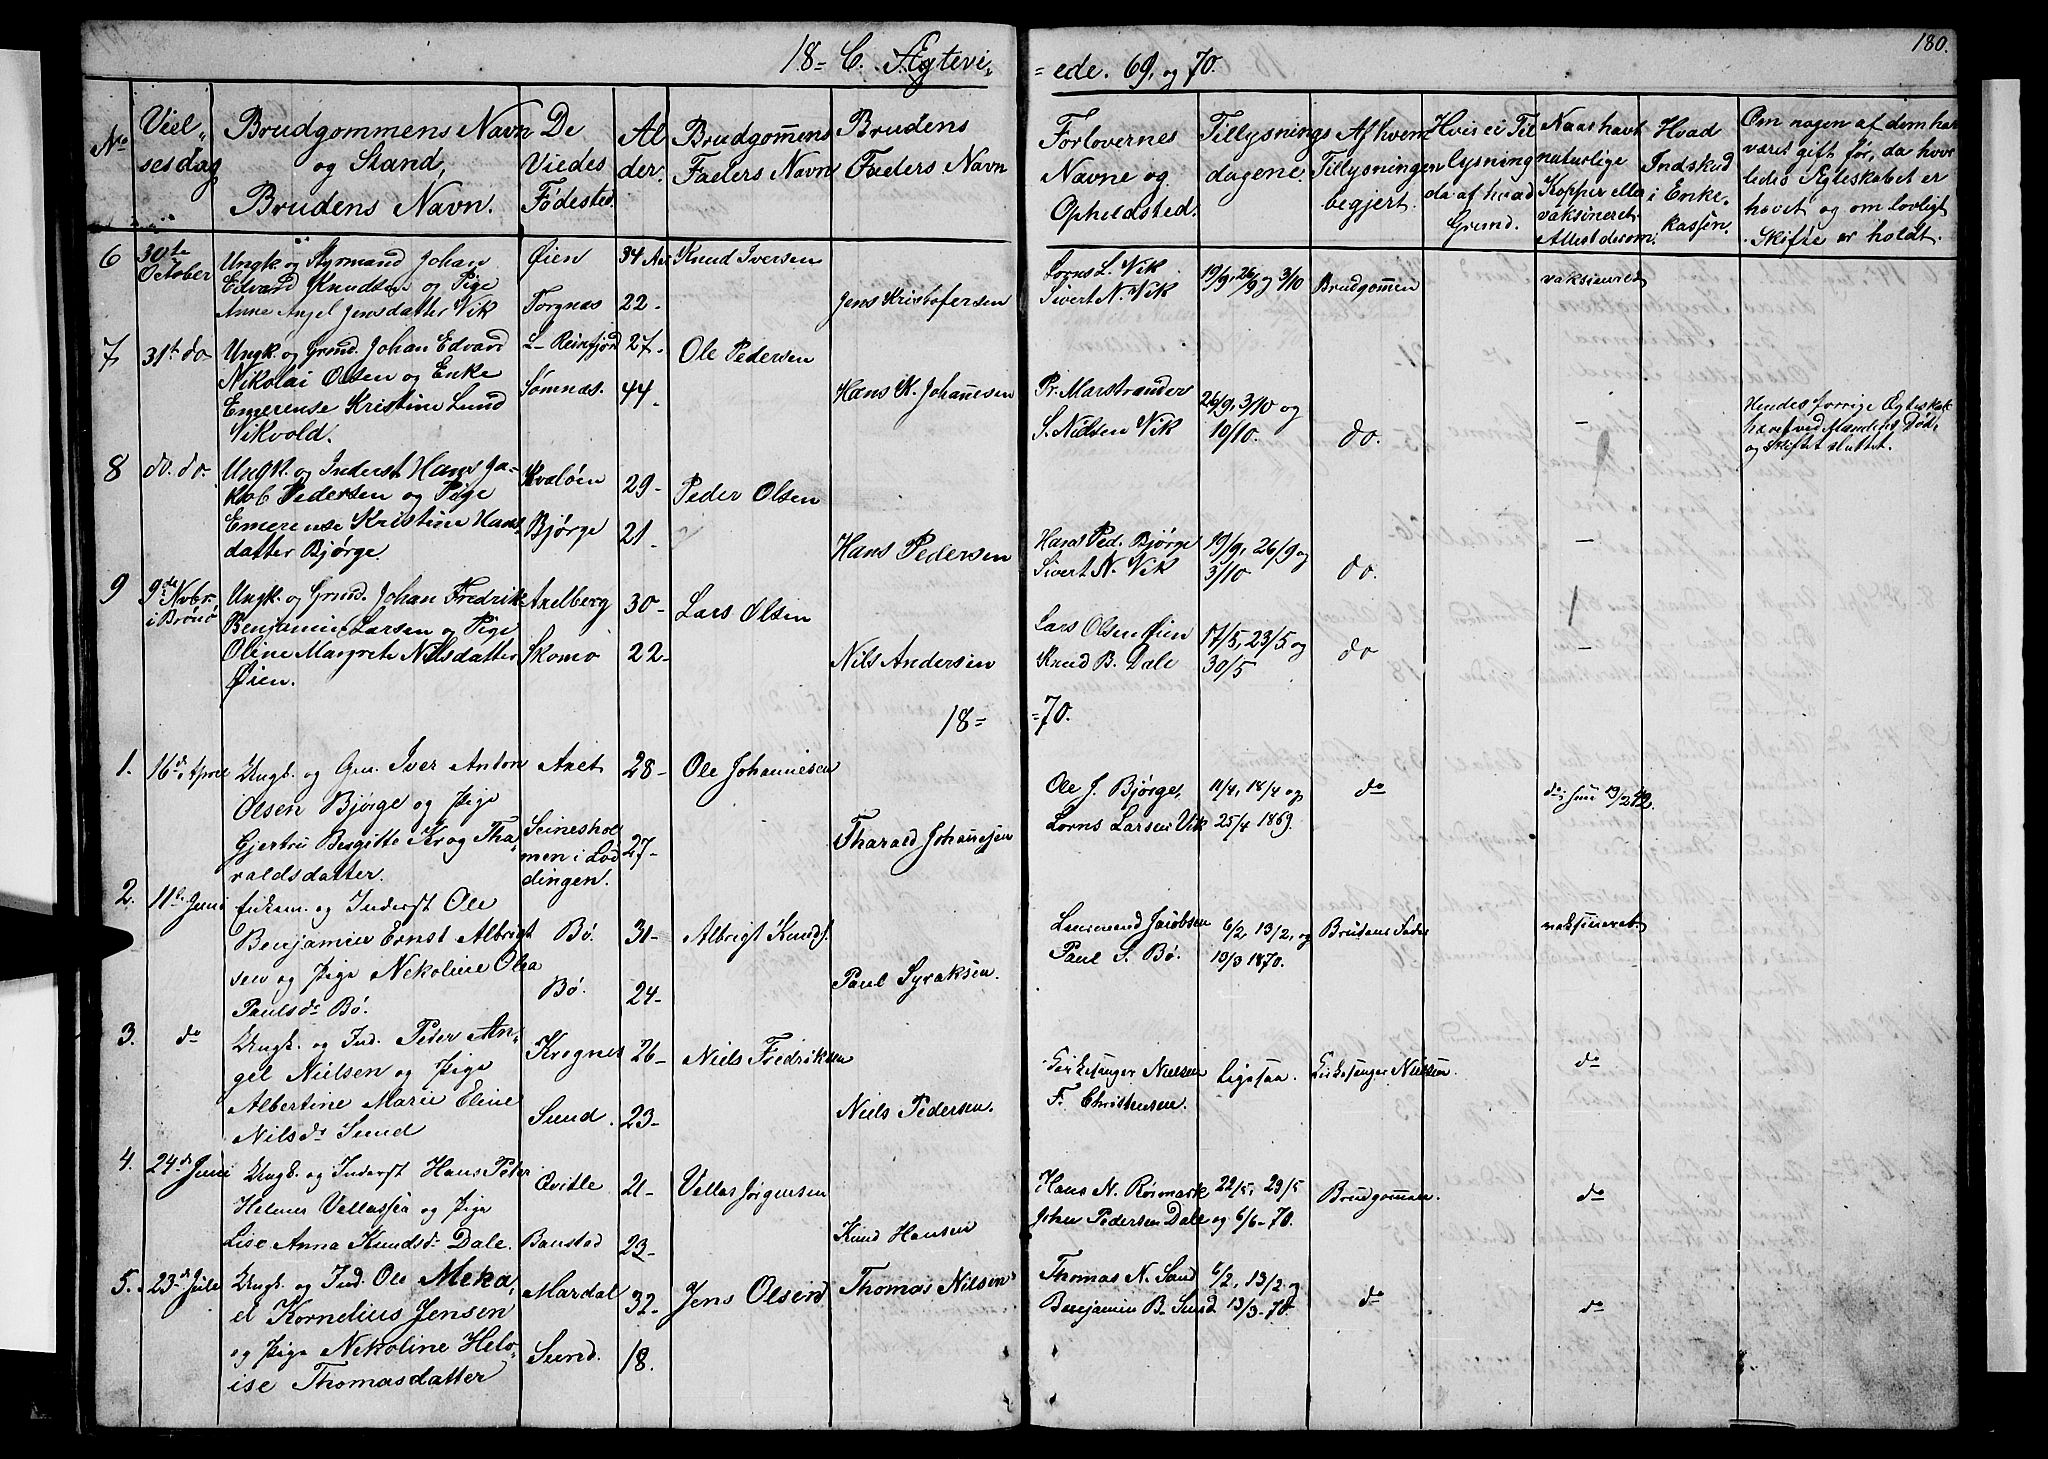 180.
18= C. Ægtevi=
=ede. 69, og 70.
No
Viel-
sesdag
Brudgommens Navn
og Stand,
Brudens Navn.
De
Viedes
Fødested.
Al
der.
Brudgomens
Faders Navn
Brudens
Faders Navn
Forlovernes
Navne og
Opholdsted.
Tillysnings
dagene.
Af hvem
Tillysningen
begjert.
Hvis ei Til
lysning
da af hvad
Grund.
Naar havt
naturlige
Kopper eller
vaksineret.
Attest derom.
Hvad
Indskud
i Enke-
kassen.
Om nogen af dem har
været gift før, da hvor
ledes Ægteskabet er
hævet og om lovligt
Skifte er holdt.
6
30te
October
Ungk. og Styrmand Johan
Edvard Knudsen og Pige
Anne Angel Jensdatter Vik
Øien
Torgnæs
34 Aar
22-
Knud Iversen
Jens Kristofersen
Lorns L. Vik
Sivert N. Vik
19/9, 26/9 og 3/10
Brudgommen
7
31te do
Ungk. og Grmd. Johan Edvard
Nikolai Olsen og Enke
Emerense Kristine Lund
Vikvold.
L- Reinfjord
Sømnæs.
27-
44-
Ole Pedersen
Hans M. Johannesen
Pr. Marstrander
S. Nielsen Vik
26/9, 3/10 og
10/10.
do.
-
Hendes forrige Ægteskab
hævet ved Mandens Død
og Skiftet sluttet.
8
do. do.
Ungk. og Inderst Hans Ja-
kob Pedersen og Pige
Emerense Kristine Hans
datter Bjørge.
Kvaløen
Bjørge
29-
21-
Peder Olsen
Hans Pedersen
Hans Ped. Bjørge
Sivert N. Vik
19/9, 26/9 og
3/10
do.
-
9
9de Nvbr.
i Brønø
Ungk. og Grmd. Johan Fredrik
Benjamin Larsen og Pige
Oline Margrete Nilsdatter
Øien.
Axelberg
Skomo
30-
22-
Lars Olsen
Nils Andersen
Lars Olsen Øien
Knud B. Dale
17/5, 23/5 og
30/5
do
-
18=
=70.
1.
16de April
Ungk. og Gm. Iver Anton
Olsen Bjørge og Pige
Gjertru Bergitte Krog Tha-
raldsdatter.
Axet
Seineshol
men i Lød
dingen.
28-
27-
Ole Johannesen
Tharald Johannesen
Ole J. Bjørge,
Lorns Larsen Vik
11/4, 18/4 og
25/4 1869.
do
2.
11te Juni
Enkem. og Inderst Ole
Benjamin Ernst Albrigt
sen og Pige Nekoline Olea
Paulsdr Bø.
Bø.
Bø.
31-
24-
Albrigt Knuds.
Paul Syraksen.
Jacobsen
Paul S. Bø.
6/2, 13/2, og
10/3 1870.
Brudens Fader
vaksineret.
3.
do
Ungk. og Ind. Peter An-
gel Nielsen og Pige
Albertine Marie Eline
Nilsdr Sund
Kregnes
Sund.
26-
23-
Niels Fredriksen
Niels Pedersen.
Kirkesanger Nielsen
F. Christensen.
Ligesaa.
Kirkesanger Nielsen.
do
4.
24de Juni
Ungk. og Inderst Hans Peter
Helmer Vellassen og Pige
Lise Anna Knudsdr Dale.
Qvitle
Baustad
21-
23-
Vellas Jørgensen
Knud Hansen
Hans N. Rørmark
John Pedersen Dale
22/5, 29/5
og 6/6-70.
Brudgommen.
do
5.
23de Juli
Ungk. og Ind. Ole Meka-
el Kornelius Jensen
og Pige Nekoline Helo-
ise Thomasdatter
Mardal
Sund.
32-
18.
Jens Olsen
Thomas Nilsen
Thomas N. Sund
Benjamin B. Sund
6/2, 13/2 og
13/3-70.
do
do